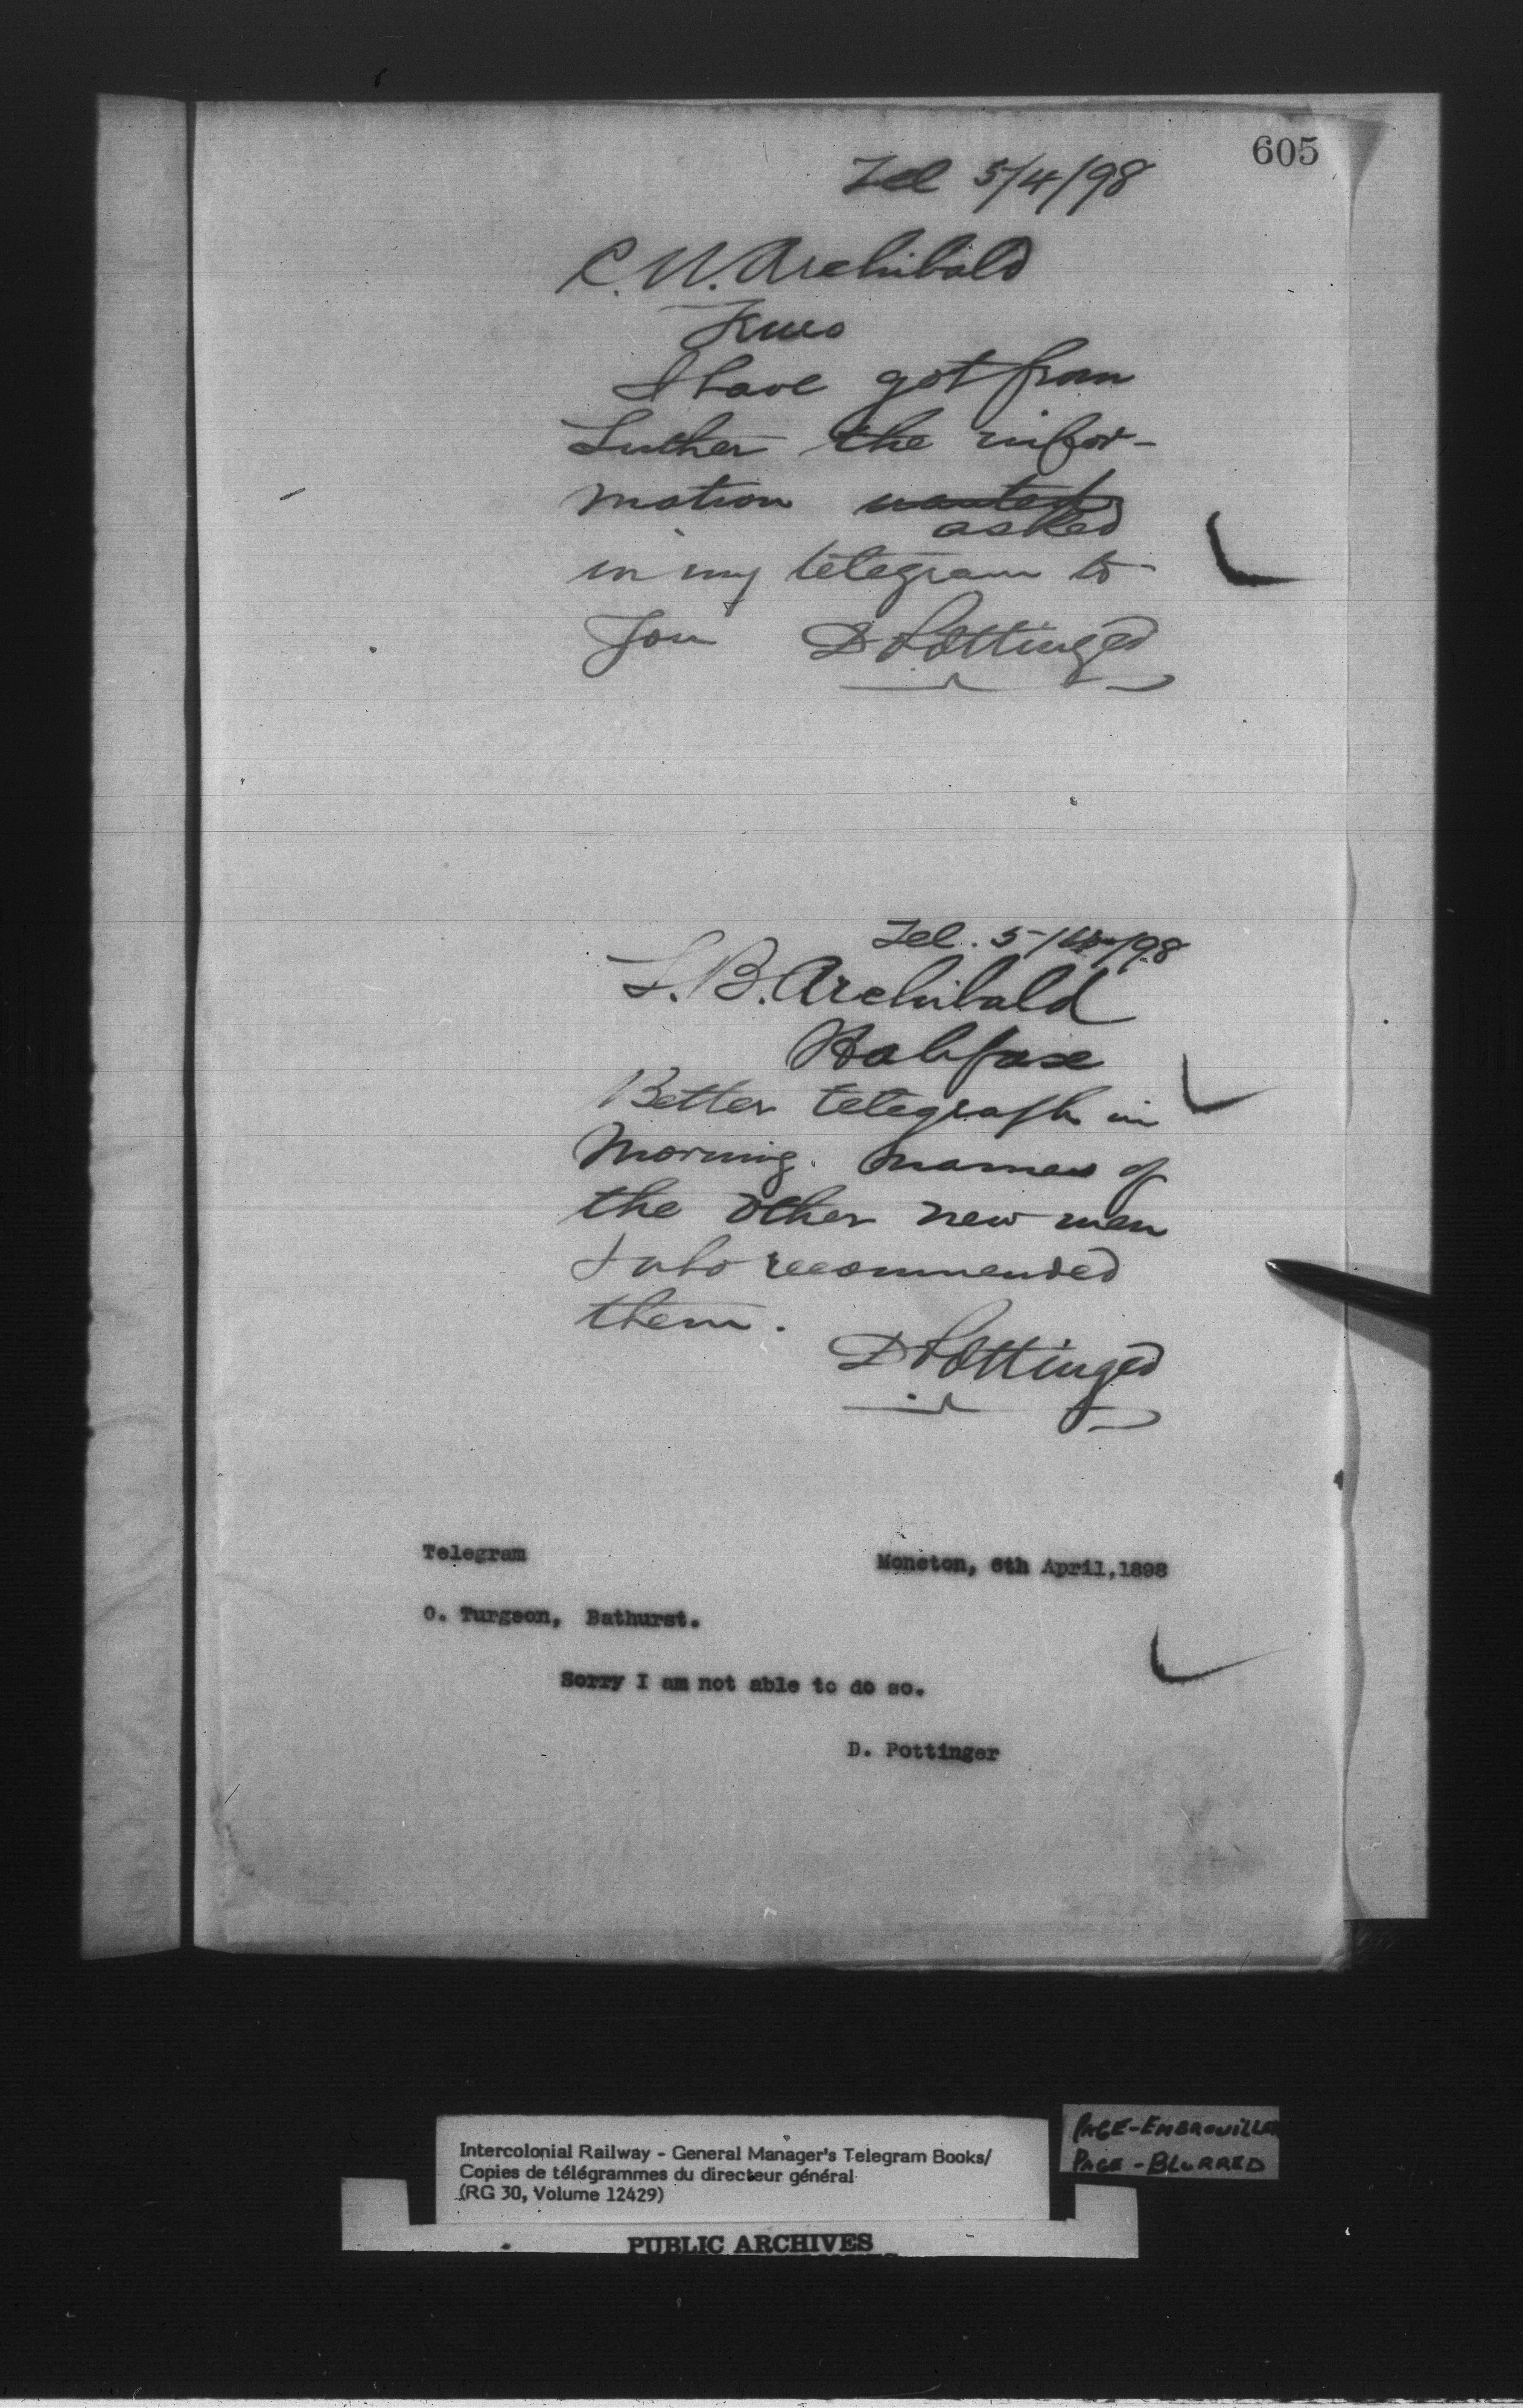 605
Tel 5/4/98
C. W. Archibald
Truro
I have got from
Luther the infor-
mation ~~wanted~~
asked
in my telegram to
you D Pottinger
Tel. 5/4/98
L. B. Archibald
Halifax
Better telegraph in
morning names of
the other new men
& who recommended
them.
D Pottinger
Telegram Moncton, 6th April, 1898
O. Turgeon, Bathurst.
Sorry I am not able to do so.
D. Pottinger
Intercolonial Railway - General Manager's Telegram Books/
Copies de télégrammes du directeur général
(RG 30, Volume 12429)
PUBLIC ARCHIVES
PAGE-EMBROUILLÉE
PAGE-BLURRED